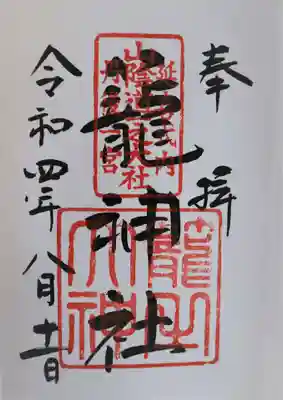 奉拝
延喜式内
山陰道大社
丹後一宮
籠神社
令和四年八月十一日